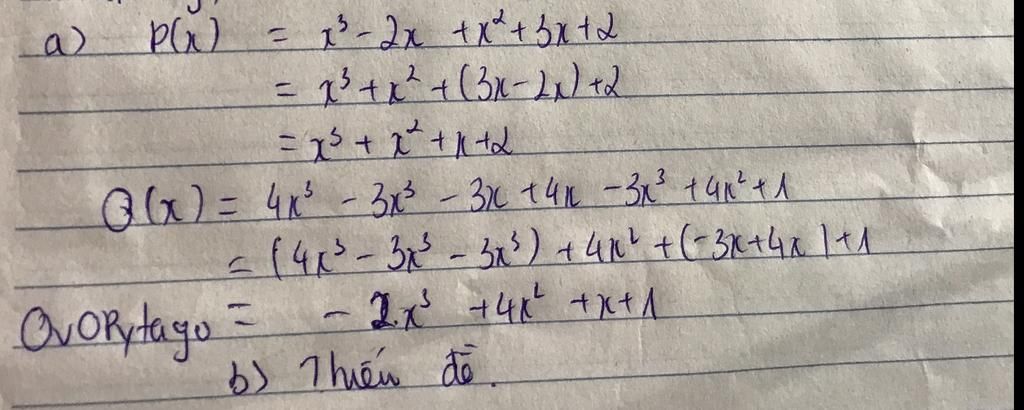 a) P(x) = x³ - 2x + x² + 3x + 2
= x³ + x² + (3x - 2x) + 2
= x³ + x² + x + 2
Q(x) = 4x³ - 3x³ - 3x + 4x - 3x³ + 4x² + 1
= (4x³ - 3x³ - 3x³) + 4x² + (-3x + 4x) + 1
QvOPytago = - 2x³ + 4x² + x + 1
b) Thiếu đề.